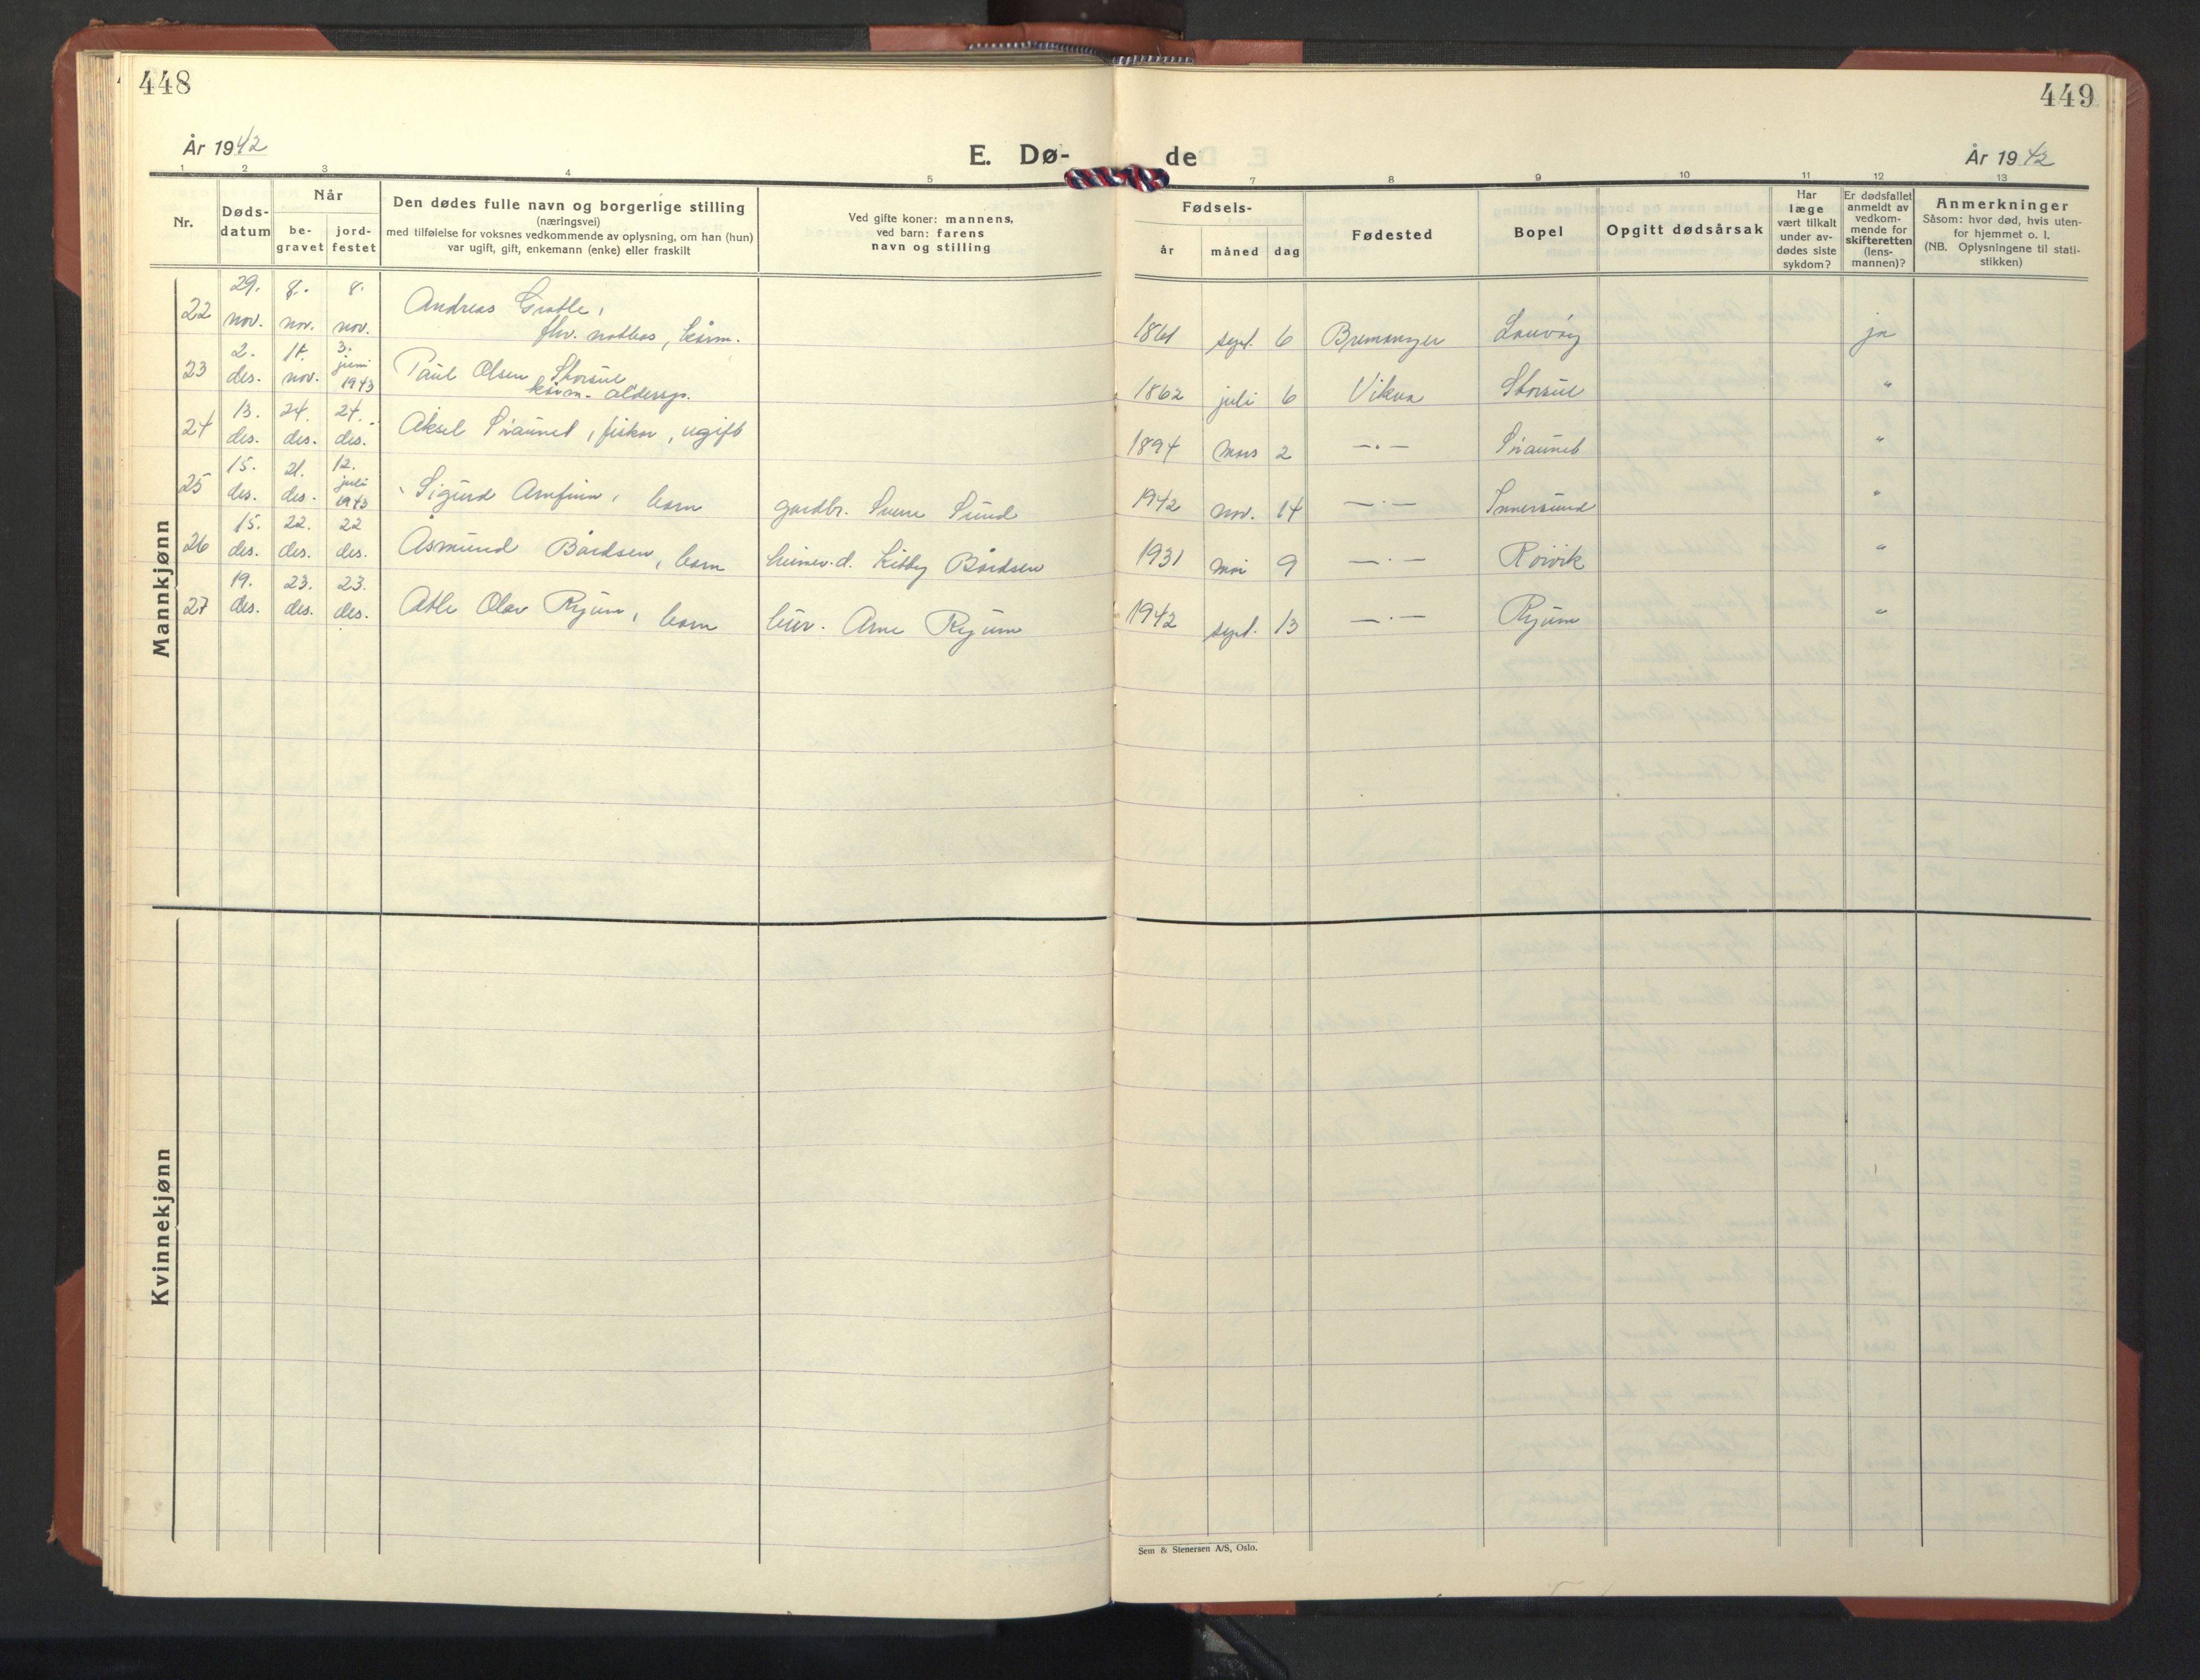 448
449
År 1942
E. Dø-
de
År 1942
1 2 3 4 5 7 8 9 10 11 12 13
Nr.
Døds-
datum
Når
be-
gravet
jord-
festet
Den dødes fulle navn og borgerlige stilling
(næringsvei)
med tilføielse for voksnes vedkommende av oplysning, om han (hun)
var ugift, gift, enkemann (enke) eller fraskilt
Ved gifte koner: mannens,
ved barn: farens
navn og stilling
Fødsels-
år måned dag
Fødested
Bopel
Opgitt dødsårsak
Har
læge
vært tilkalt
under av-
dødes siste
sykdom?
Er dødsfallet
anmeldt av
vedkom-
mende for
skifteretten
(lens-
mannen)?
Anmerkninger
Såsom: hvor død, hvis uten-
for hjemmet o. l.
(NB. Oplysningene til stati-
stikken)
Mannkjønn
22 29. nov. 8. nov. 8. nov. Andreas
fhv.
1861 sept. 6 Bremanger Lauvøy ja
23 2. des. nov. 3. juni 1943 Paul Olsen Storsul
alderstr.
1862 juli 6 Vikna Storsul "
24 13. des. 24. des. 24. des. Aksel fisker, ugift
1894 mars 2 —·— "
25 15. des. 21. des. 12. juli 1943 Sigurd Arnfinn, barn gardbr. Sverre Sund
1942 nov. 14 —·— Innersund "
26 15. des. 22. des. 22 des. Åsmund Bårdsen, barn Bårdsen
1931 mai 9 —·— "
27 19. des. 23. des. 23. des. Atle Olav Ryum, barn Arne Ryum
1942 sept. 13 —·— Ryum "
Kvinnekjønn
Sem & Stenersen A/S, Oslo.